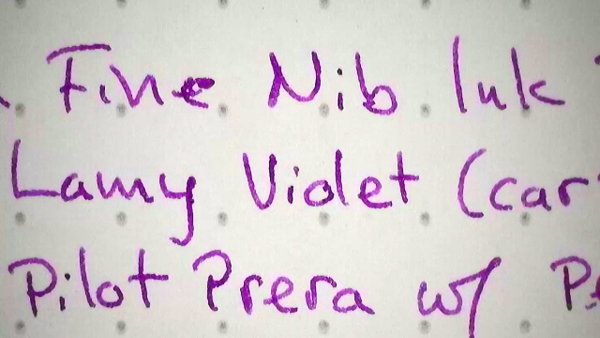 Fine Nib Ink
Lamy Violet (car
Pilot Prera w/ P